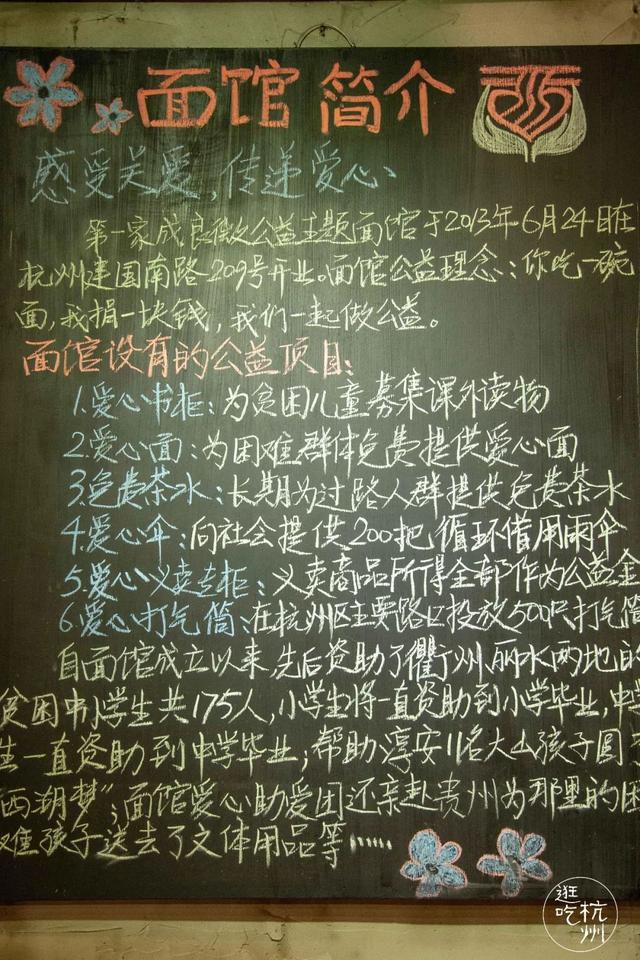 面馆简介
感受关爱,传递爱心
第一家成良微公益主题面馆于2013年6月24日在
杭州建国南路209号开业。面馆公益理念:你吃一碗
面,我捐一块钱,我们一起做公益。
面馆设有的公益项目:
1.爱心书柜:为贫困儿童募集课外读物
2.爱心面:为困难群体免费提供爱心面
3.免费茶水:长期为过路人群提供免费茶水
4.爱心伞:向社会提供200把循环借用雨伞
5.爱心义卖专柜:义卖商品所得全部作为公益金
6.爱心打气筒:在杭州区主要路口投放500只打气筒
自面馆成立以来,先后资助了衢州、丽水两地的
贫困中小学生共175人,小学生将一直资助到小学毕业,中学
生一直资助到中学毕业;帮助淳安11名大山孩子圆了
西湖梦”;面馆爱心助爱团还亲赴贵州为那里的困
难孩子送去了文体用品等……
逛吃杭州